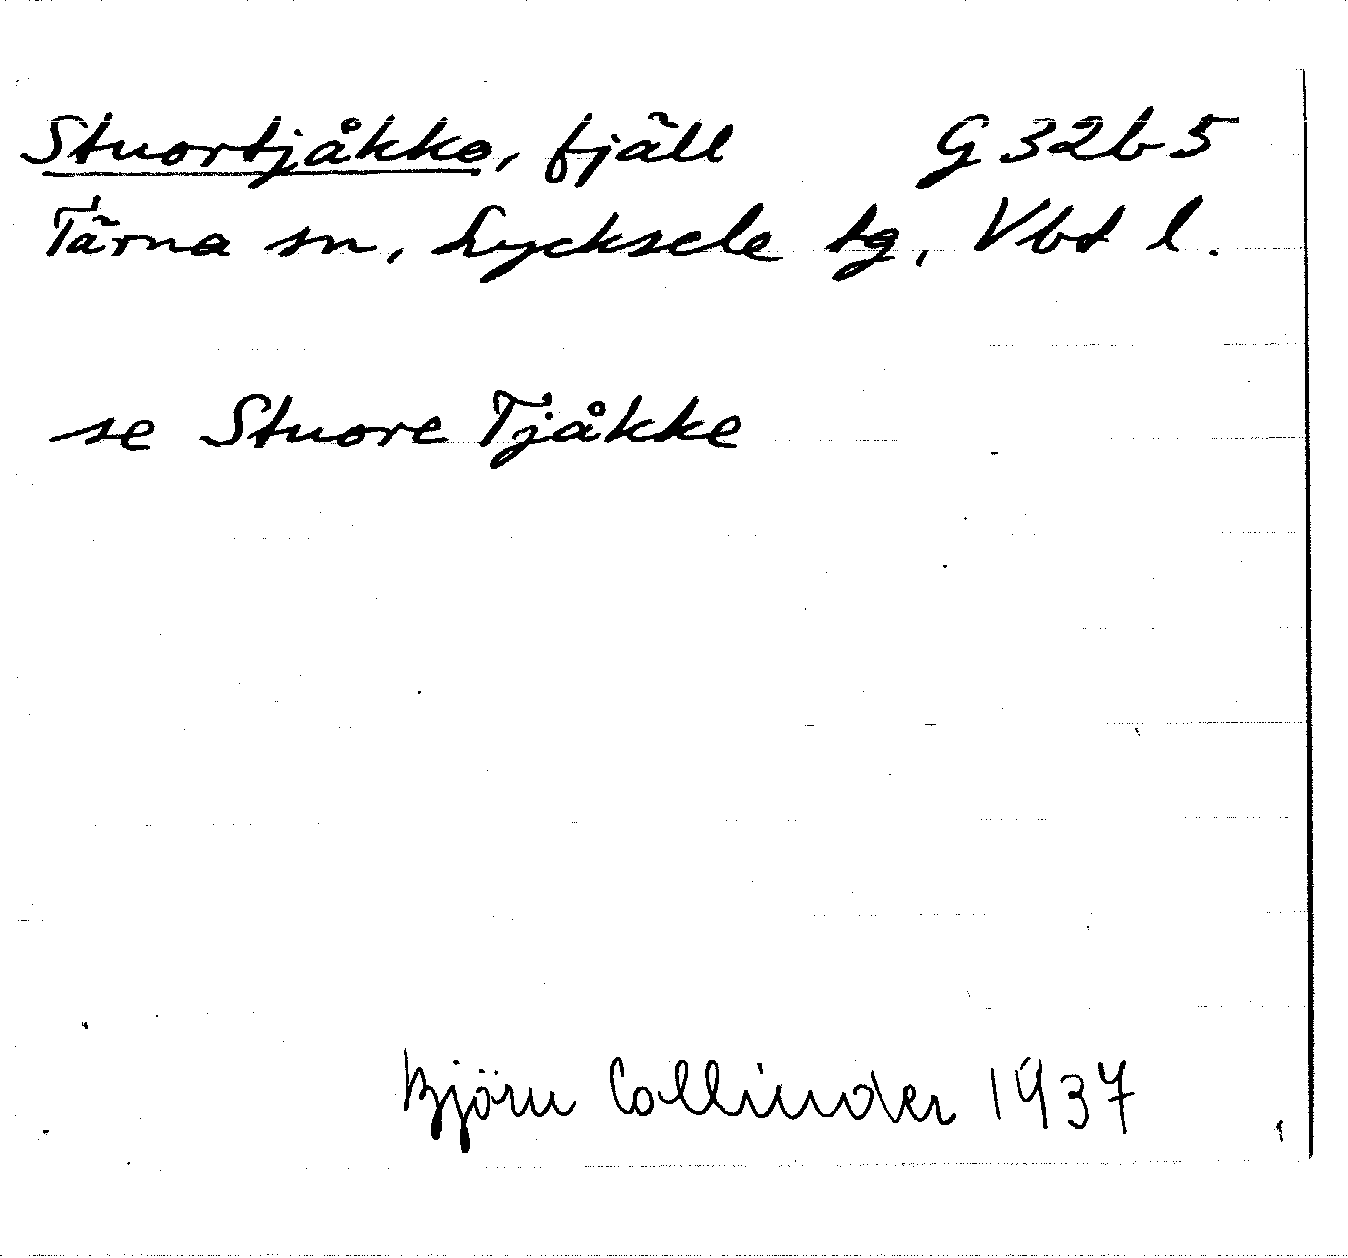 Stuortjåkko, fjäll G 32b5
Tärna sn, Lycksele tg, Vbt l.
se Stuore Tjåkke
Björn Collinder 1937